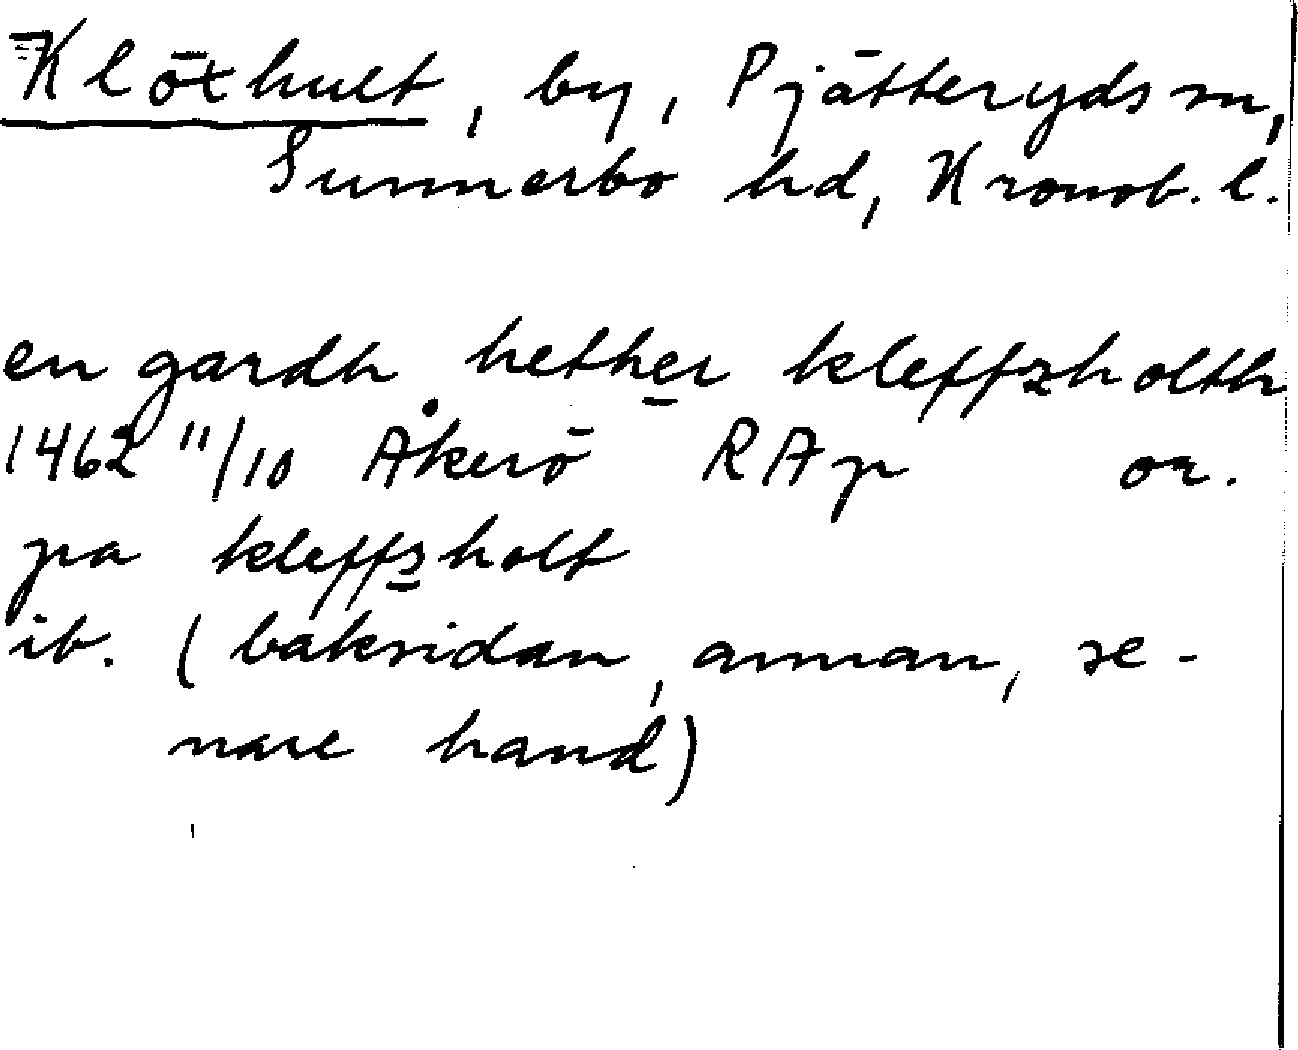 Klöxhult, by, Pjätteryds sn,
Sunnerbo hd, Kronob. l.
en gardh hether kleffzholth
1462 11/10 Åkerö RAp or.
pa kleffsholt
ib. (baksidan, annan, se-
nare hand)